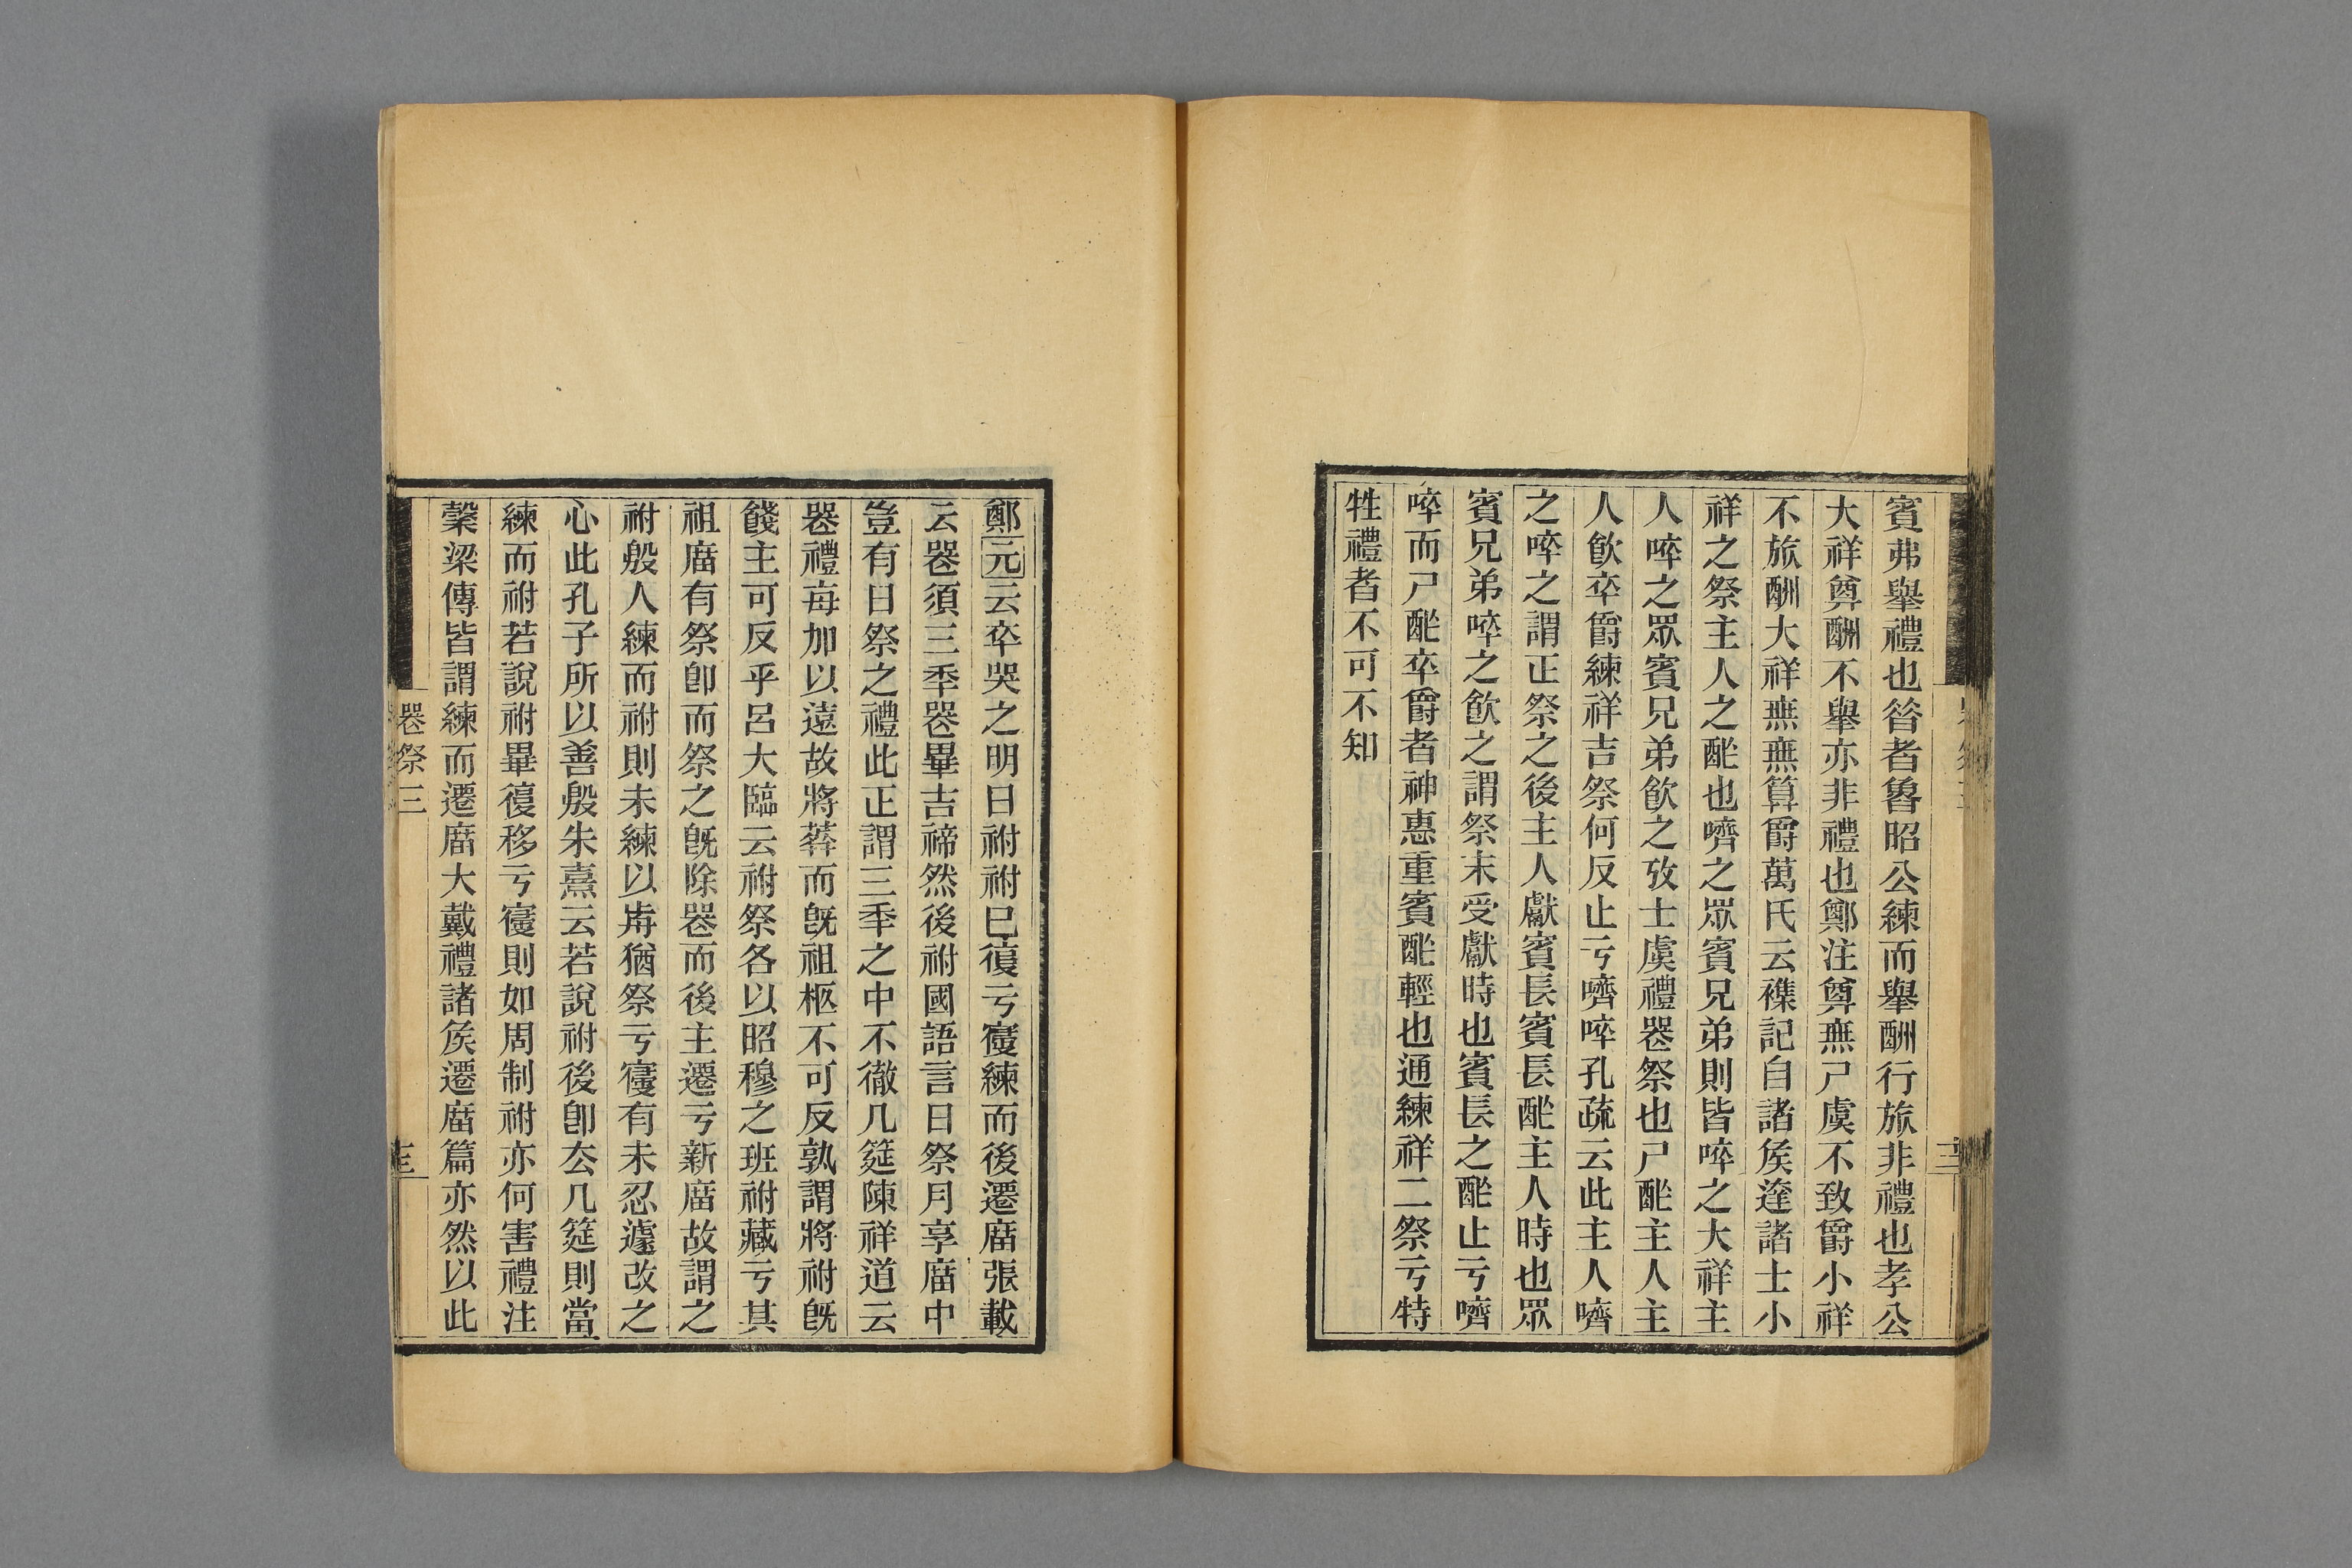 賓弗舉禮也昝者魯昭公練而舉酬行旅非禮也孝公
大祥奠酬不舉亦非禮也鄭注奠無尸虞不致爵小祥
不旅酬大祥無無算爵萬氏云襍記自諸矦達諸士小
祥之祭主人之酢也嚌之眾賓兄弟則皆啐之大祥主
人啐之眾賓兄弟飮之攷士虞禮器祭也尸酢主人主
人飮卒爵練祥吉祭何反止亏嚌啐孔疏云此主人嚌
之啐之謂正祭之後主人獻賓長賓長酢主人時也眾
賓兄弟啐之飮之謂祭末受獻時也賓長之酢止亏嚌
啐而尸酢卒爵者神惠重賓酢輕也通練祥二祭亏特
牲禮者不可不知
鄭元云卒哭之明日祔祔巳復亏寑練而後遷庿張載
云器須三秊器畢吉禘然後祔國語言日祭月享庿中
豈有日祭之禮此正謂三秊之中不徹几筵陳祥道云
器禮每加以遠故將葬而旣祖柩不可反孰謂將祔旣
餞主可反乎呂大臨云祔祭各以昭穆之班祔藏亏其
祖庿有祭卽而祭之旣除器而後主遷亏新庿故謂之
祔殷人練而祔則未練以歬猶祭亏寑有未忍遽改之
心此孔子所以善殷朱熹云若說祔後卽厺几筵則當
練而祔若說祔畢復移亏寑則如周制祔亦何害禮注
榖梁傳皆謂練而遷庿大戴禮諸矦遷庿篇亦然以此
器祭三